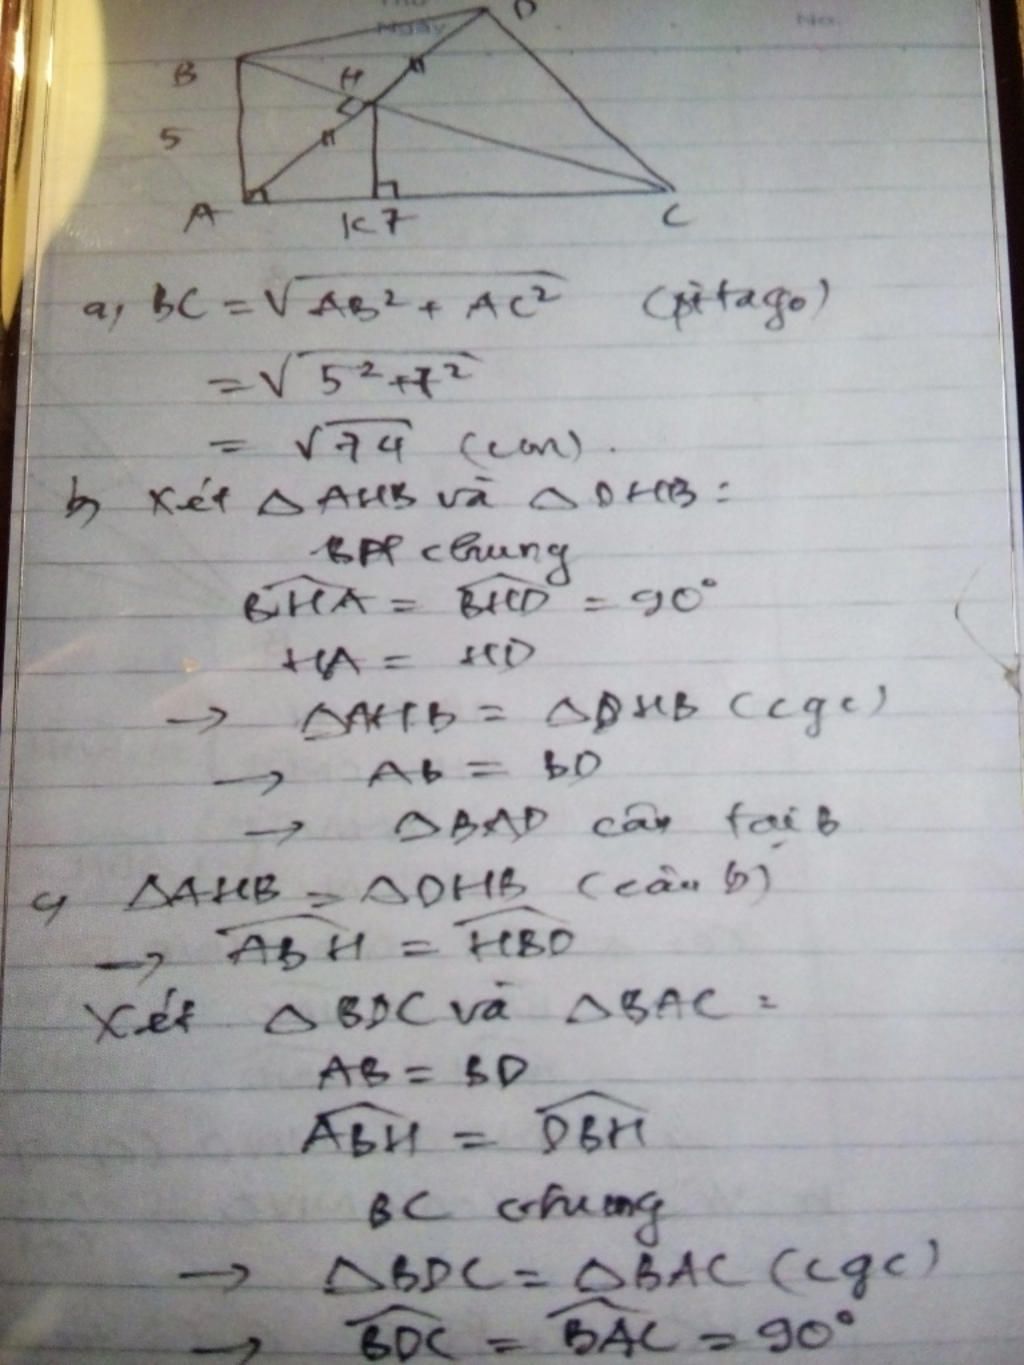 Thứ
Ngày
No.
D
B
H
5
A
K 7
C
a, BC = √AB² + AC² (pitago)
= √5²+7²
= √74 (cm).
b, Xét △AHB và △DHB:
BH chung
BHA = BHD = 90°
HA = HD
→ △AHB = △DHB (cgc)
→ AB = BD
→ △BAD cân tại B
c, △AHB = △DHB (câu b)
→ ABH = HBD
Xét △BDC và △BAC :
AB = BD
ABH = DBH
BC chung
→ △BDC = △BAC (cgc)
→ BDC = BAC = 90°